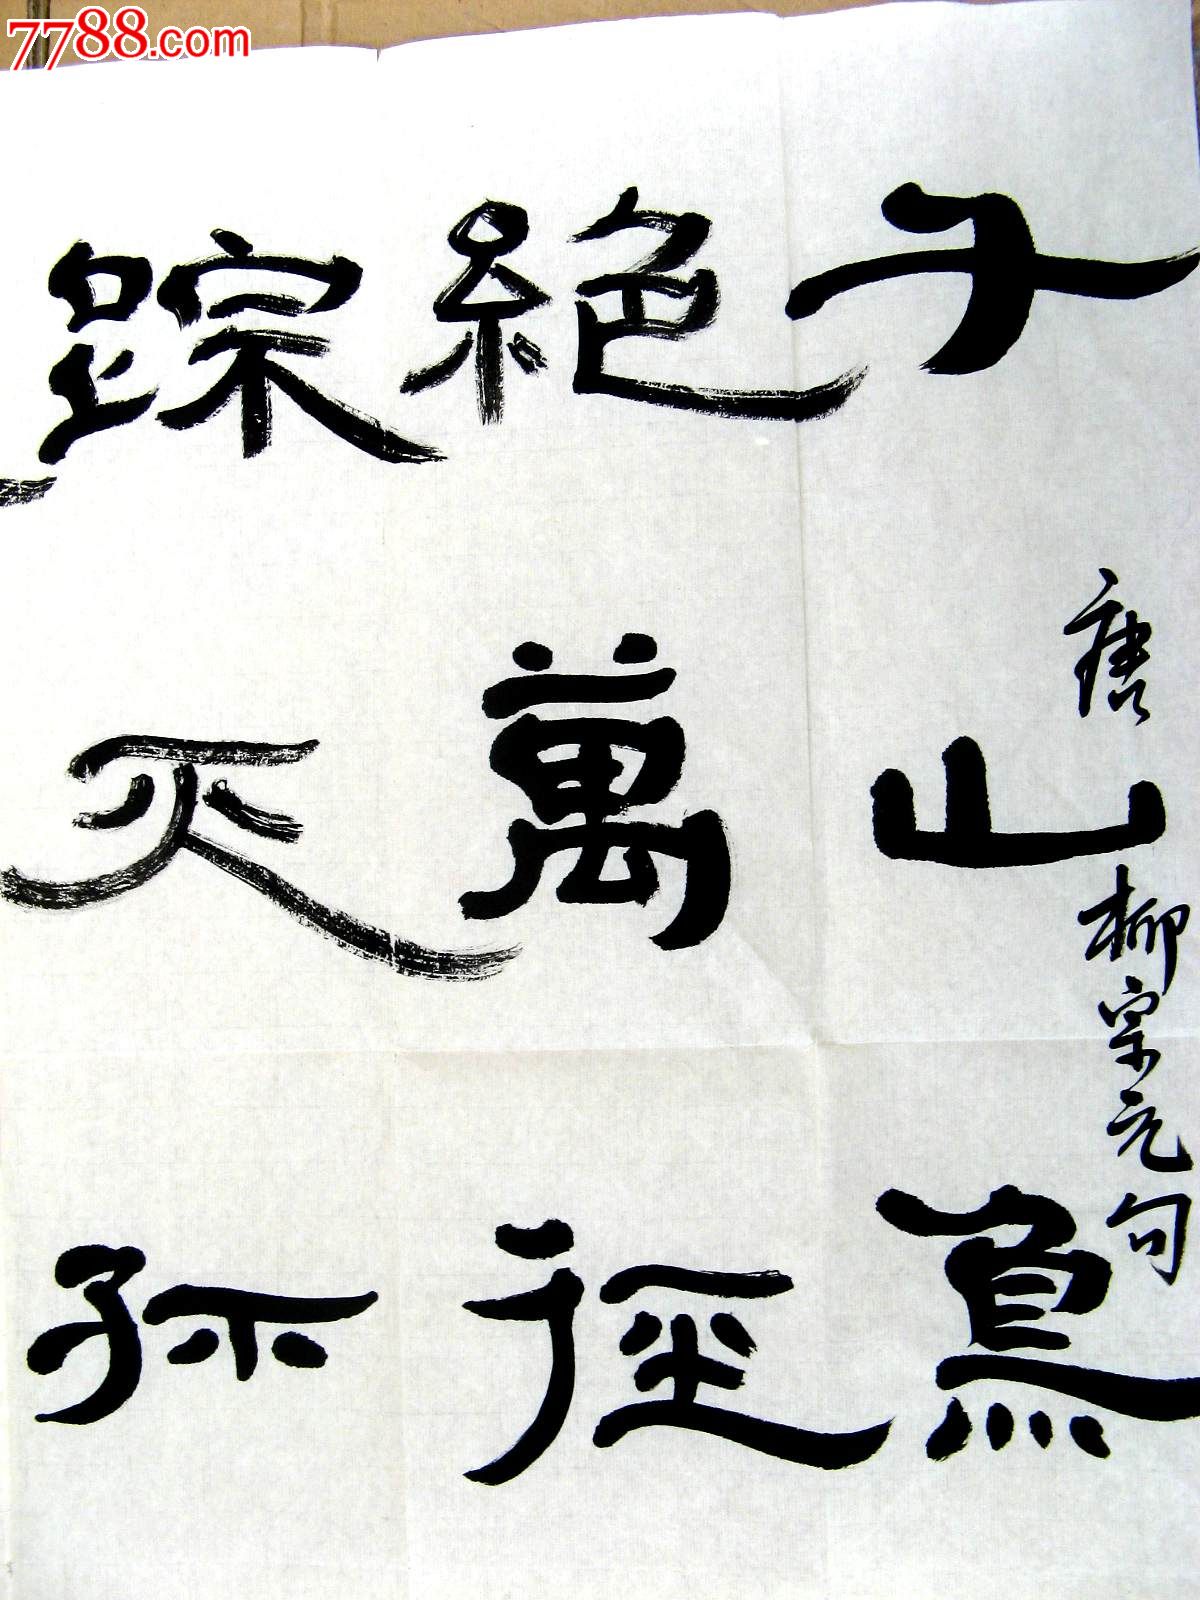 唐柳宗元句
千山鳥
絕萬徑
踪灭孤
7788.com